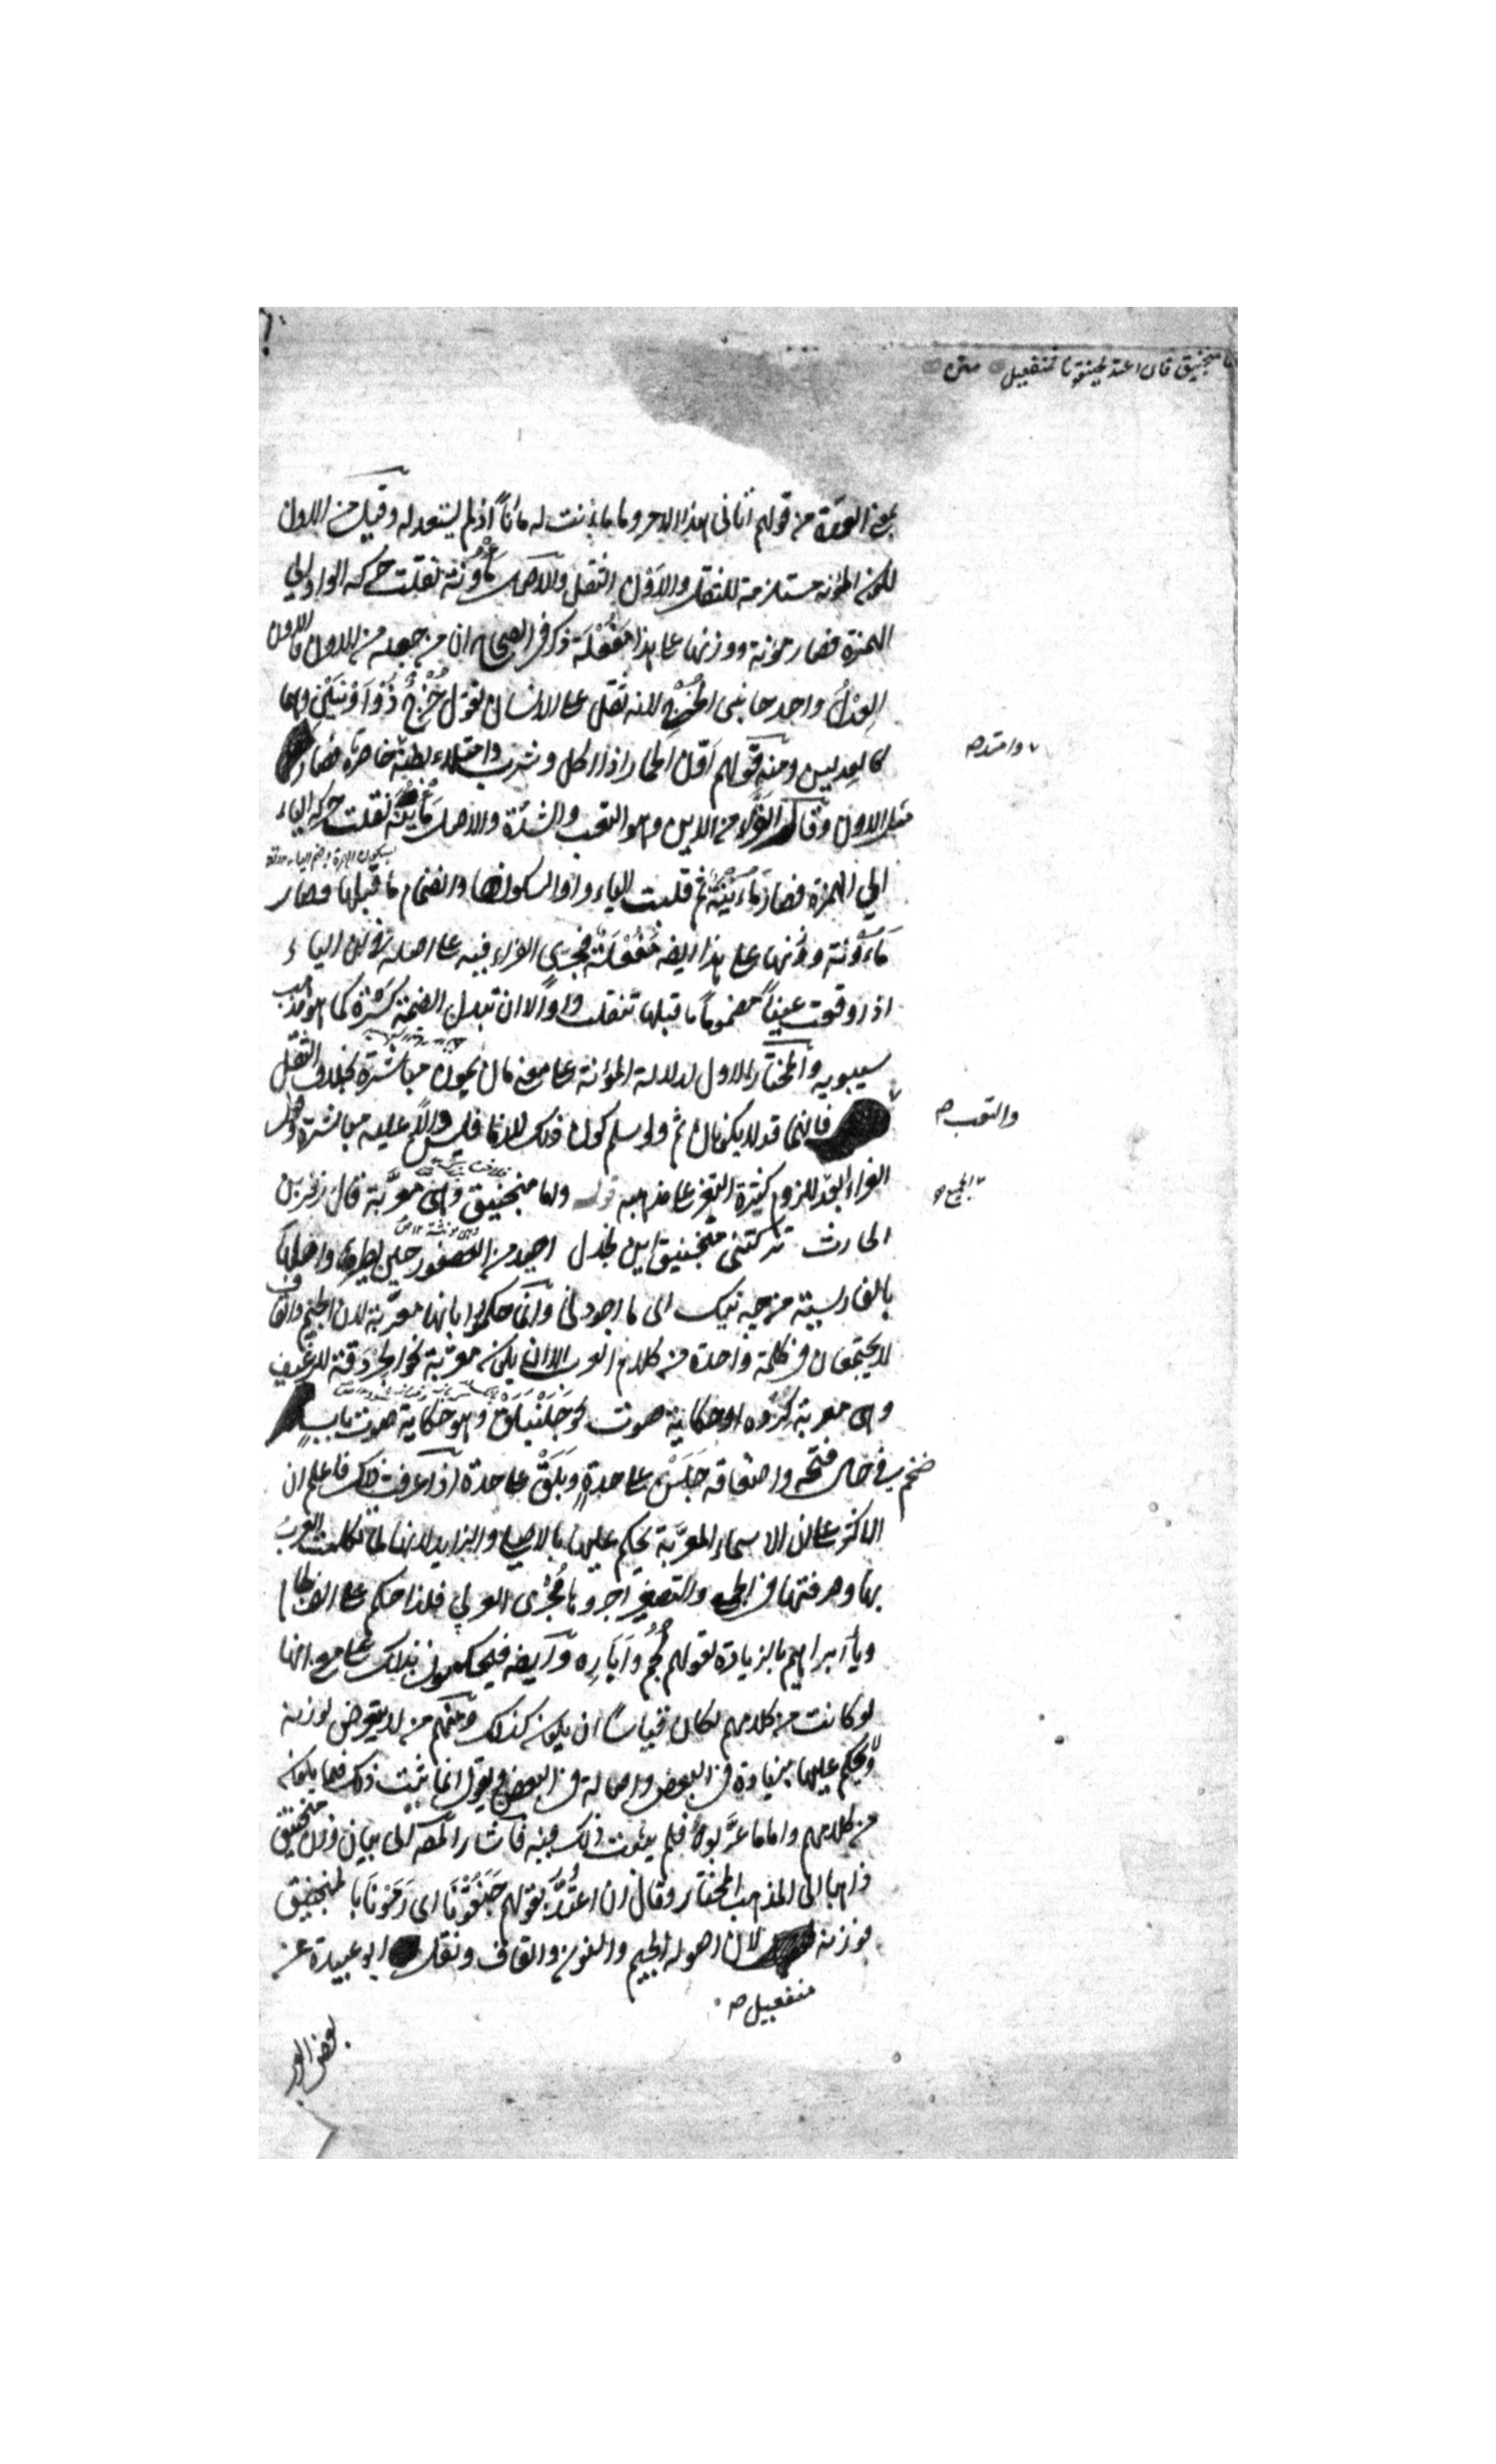 اما منجنيق فان اعتد بجنقونا فمنفعيل متن
بمعنى العدة من قولهم اتانى هذا الامر وما مأنت له مأناً اذا لم يستعد له وقيل من الاون
لان المؤنة مستلزمة للثقل والاون الثقل والاصل مَأْوُنَة نقلت حركة الواو الى
الهمزة فصار مؤنة ووزنها على هذا مَفُعْلَة ذكر فى الصحاح ان من جعله من الاون فالاون
العِدْلُ واحد جانبى الخُرْج لانه ثقل على الانسان تقول خُرْجٌ ذُو اَوْنَيْن وهما
كالعدلين ومنه قولهم اَوَّن الحمار اذا اكل وشرب وامتلاء بطنه خاصرتاه فصار
وامتد صح
مثل الاون وقال الفراء من الاين وهو التعب والشدة والاصل مَأْيُنَة نقلت حركة الياء
الى الهمزة فصار مَاءُيْنَة ثم قلبت الياء واوا لسكونها وانضمام ما قبلها فصار
مَاءُوْنة ووزنها على هذا ايضا مَفُعْلَة فجرى الفراء فيه على اصله فى ان الياء
اذا وقعت عيناً مضموماً ما قبلها تنقلب واواً لا ان تبدل الضمة كسرة كما هو مذهب
سيبويه والمختار الاول لدلالة المؤنة على معنى مان يمون مباشرة بخلاف الثقل
والتعب صح
فانهما قد لا يكونان ثم ولو سلم كون ذلك لازما فليس دالاً عليه مباشرة وقول
الفراء ابعد للزوم كثرة التغير على مذهبه قوله واما منجنيق وهى معرّبة قال زفر بن
الحارث تركتنى منجنيق ابن بجدل احيد من العصفور حين يطير واصلها
بالفارسية من چه نيك اى ما اجودنى وانما حكموا بانها معرّبة لان الجيم والقاف
لا يجتمعان فى كلمة واحدة من كلام العرب الا ان يكون معرّبة نحو الجردقة للرغيف
وهى معربة كرده او حكاية صوت نحو جَلَنْبَلَق وهو حكاية صوت باب
ضخم فى حال فتحه واصفاقه جَلَنْ على حدة وبَلَقْ على حدة اذا عرفت ذلك فاعلم ان
الاكثر على ان الاسماء المعرّبة يحكم عليها بالاصلى والزايد لانها لما تكلمت العرب
بها وصرفتها فى الجمع والتصغير اجروها مُجْرَى العربى فلذا حكم على الف لجام
وياء ابراهيم بالزيادة لقولهم لُجُم وأبَارِه وايضا فيحكمون بذلك على معنى انها
لو كانت من كلامهم لكان قياساً ان يكون كذلك ومنهم من لا يتعرض لوزنه
ولا يحكم عليها بزيادة فى البعض واصالة فى البعض ويقول انما يثبت ذلك فيما يكون
من كلامهم واما ما عرَّبوه فلم يثبت ذلك فيه فاشار المص الى بيان وزن منجنيق
ذاهبا الى المذهب المختار وقال ان اعتُدَّ بقولهم جَنَقُوْنَا اى رَمَوْنَا بالمنجنيق
فوزنه لان اصوله الجيم والنون والقاف ونقل ابو عبيدة عن
منفعيل صح
بعض العر